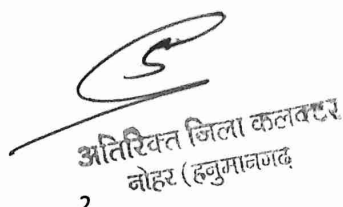 अतिरिक्त जिला कलक्टर
नोहर (हनुमानगढ़
2